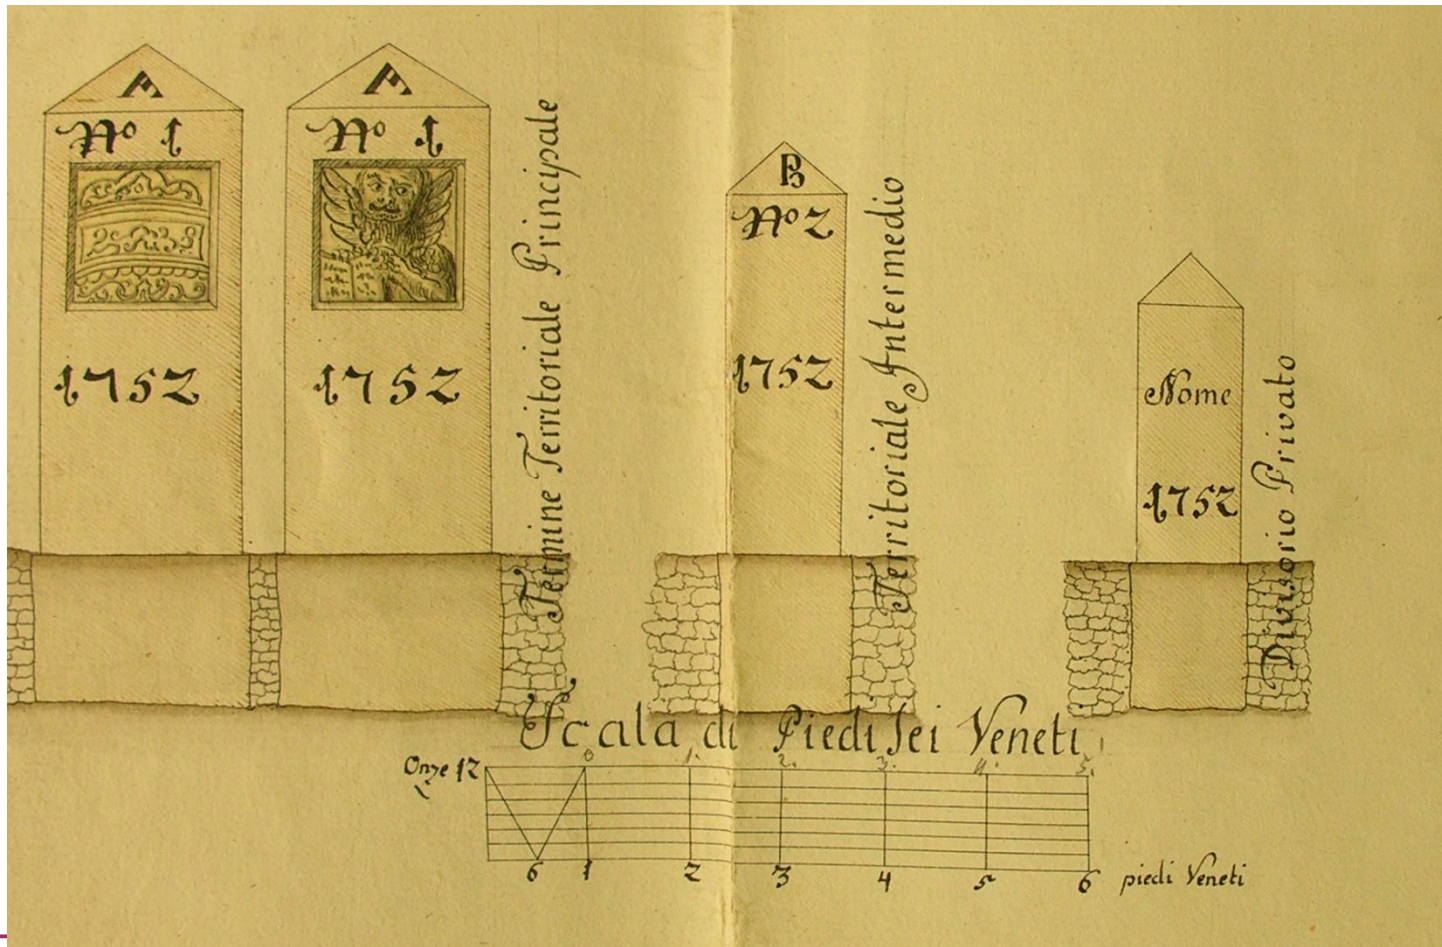 A
Nº 1
1752
A
Nº 1
1752
Termine Territoriale Principale
B
Nº 2
1752
Territoriale Intermedio
Nome
1752
Divisorio Privato
Scala di Piedi sei Veneti
0 1. 2. 3. 4. 5.
Onze 12
6 1 2 3 4 5 6 piedi Veneti